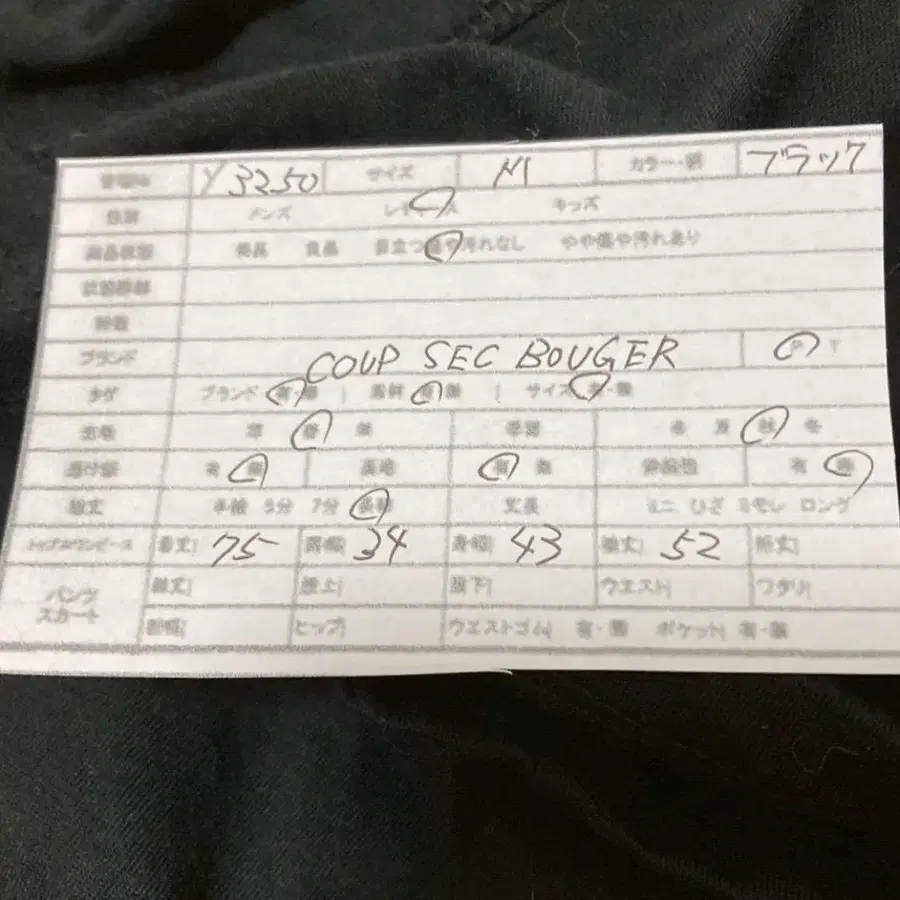 Y3250 サイズ M カラー・柄 ブラック
性別 メンズ レディース キッズ
商品状態 美品 良品 目立つ傷や汚れなし やや傷や汚れあり
状態詳細
ブランド COUP SEC BOUGER P T
タグ ブランド 有・無 | 素材 有・無 | サイズ 有・無
季節 春 夏 秋 冬
透け感 有 無 裏地 有 無 伸縮性 有 無
袖丈 半袖 5分 7分 長袖 丈長 ミニ ひざ ミモレ ロング
トップス/ワンピース 着丈 75 肩幅 34 身幅 43 袖丈 52 裄丈
パンツ スカート 総丈 股上 股下 ウエスト ワタリ
裾幅 ヒップ ウエストゴム 有・無 ポケット 有・無